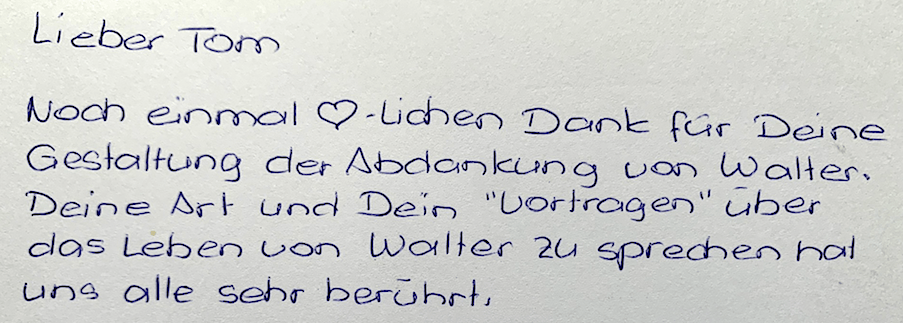 Lieber Tom
Noch einmal ♡-lichen Dank für Deine
Gestaltung der Abdankung von Walter.
Deine Art und Dein "Vortragen" über
das Leben von Walter zu sprechen hat
uns alle sehr berührt.